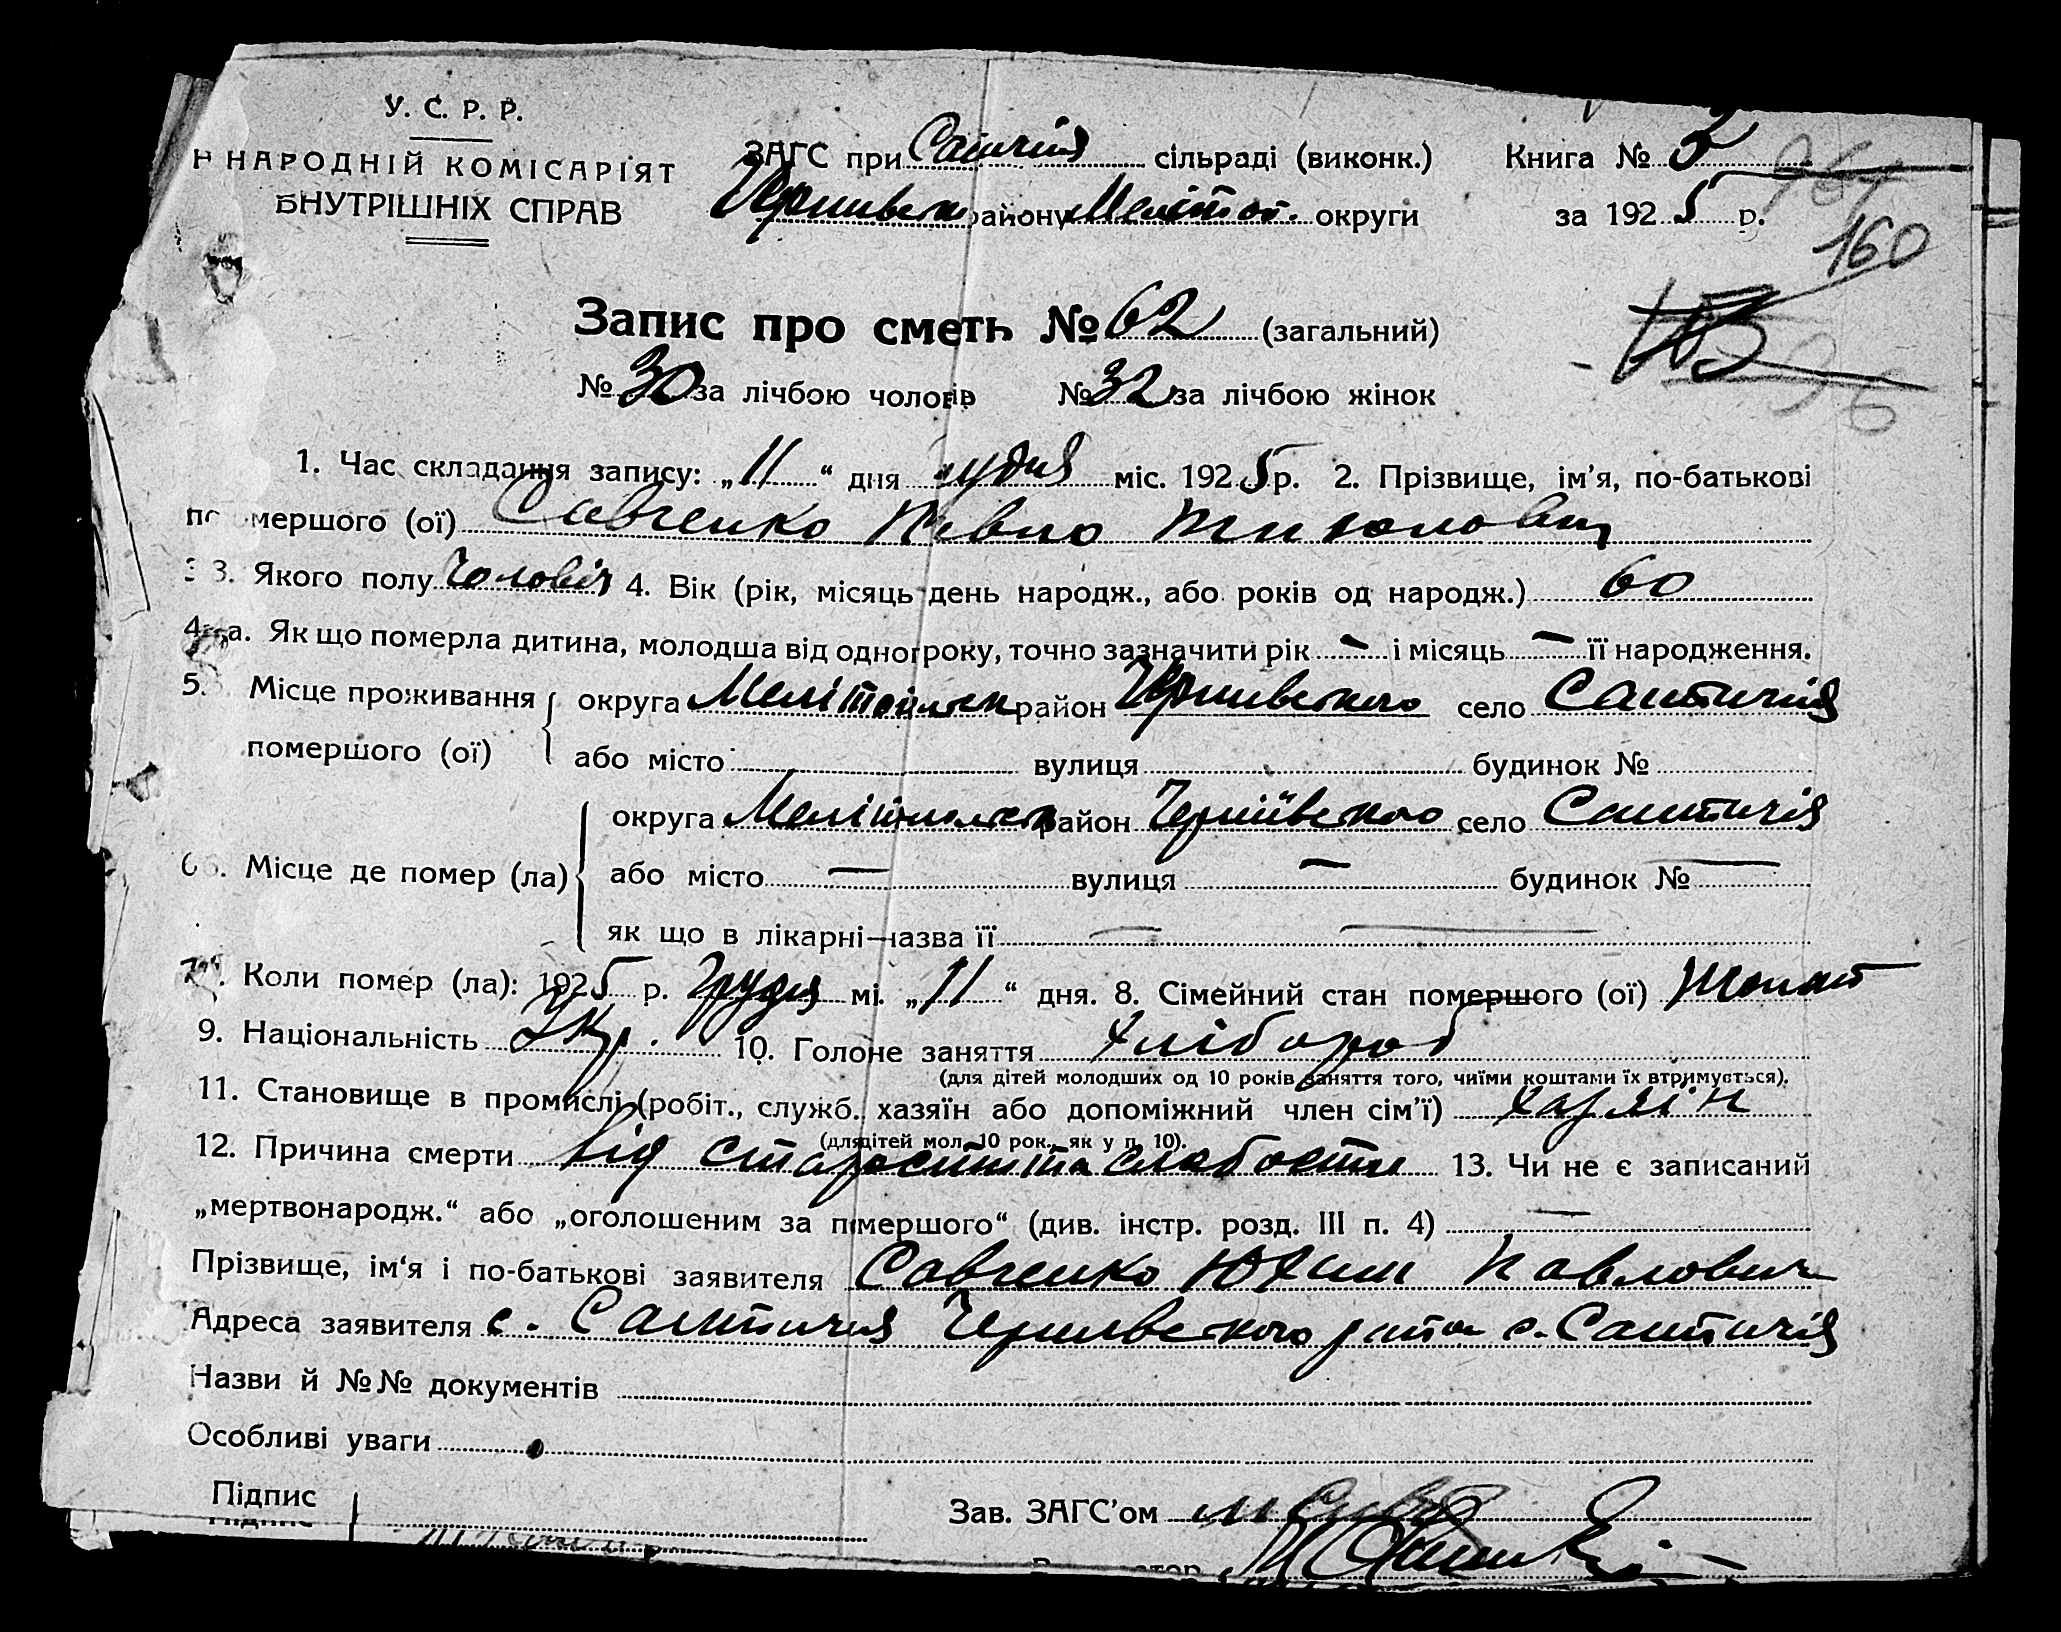 У. С. Р. Р.
НАРОДНІЙ КОМІСАРІЯТ
ВНУТРІШНІХ СПРАВ
ЗАГС при сільраді (виконк.) Книга № 3
району Меліто. округи за 1925 р.
160
Запис про смегть № 62 (загальний)
№ 30 за лічбою чолов № 32 за лічбою жінок
1. Час складання запису: „11“ дня грудня міс. 1925 р. 2. Прізвище, ім'я, по-батькові
помершого (ої) Савченко Павло
3. Якого полу Чоловіч 4. Вік (рік, місяць день народж., або років од народж.) 60
4 а. Як що померла дитина, молодша від одног року, точно зазначити рік — і місяць — її народження.
5. Місце проживання округа Мелітопольск район село
помершого (ої) або місто вулиця будинок №
округа Мелітопольск район село
6. Місце де помер (ла) або місто — вулиця — будинок № —
як що в лікарні—назва її — —
7. Коли помер (ла): 1925 р. Грудня мі. „11“ дня. 8. Сімейний стан помершого (ої) Жонат
9. Національність Укр. 10. Голоне заняття Хлібороб
(для дітей молодших од 10 років заняття того, чиїми коштами їх втримується).
11. Становище в промислі (робіт., служб., хазяїн або допоміжний член сім'ї) Хазяін
(для дітей мол. 10 рок., як у п. 10).
12. Причина смерти Від старости та слабости 13. Чи не є записаний
„мертвонародж.“ або „оголошеним за помершого“ (див. інстр. розд. III п. 4) —
Прізвище, ім‘я і по-батькові заявителя Савченко Юхим Павлович
Адреса заявителя с.
Назви й №№ документів
Особливі уваги
Підпис Зав. ЗАГС'ом